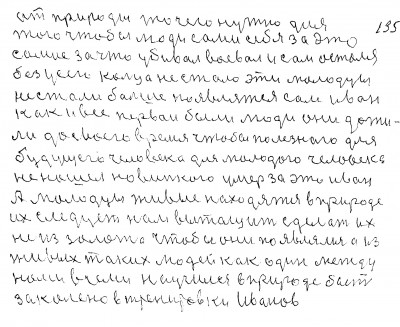 от природы то чего нужно для 195
того чтобы люди сами себя за это
самие за что убивал воевал и сам остался
без усего конца не стало эти молодуы
не стали больше появлятся сам иван
как и все перваи были люди они дожи-
ли до своего время чтобы полезного для
будущего человека для молодого человека
не нашел новинкого умер за это иван
А молодуы живые находятся в природе
их следует нам вытащит сделат их
не из золото чтобы они появлялис а из
живых таких людей как один между
нами всеми научился в природе быт
закалено в тренировки Иванов